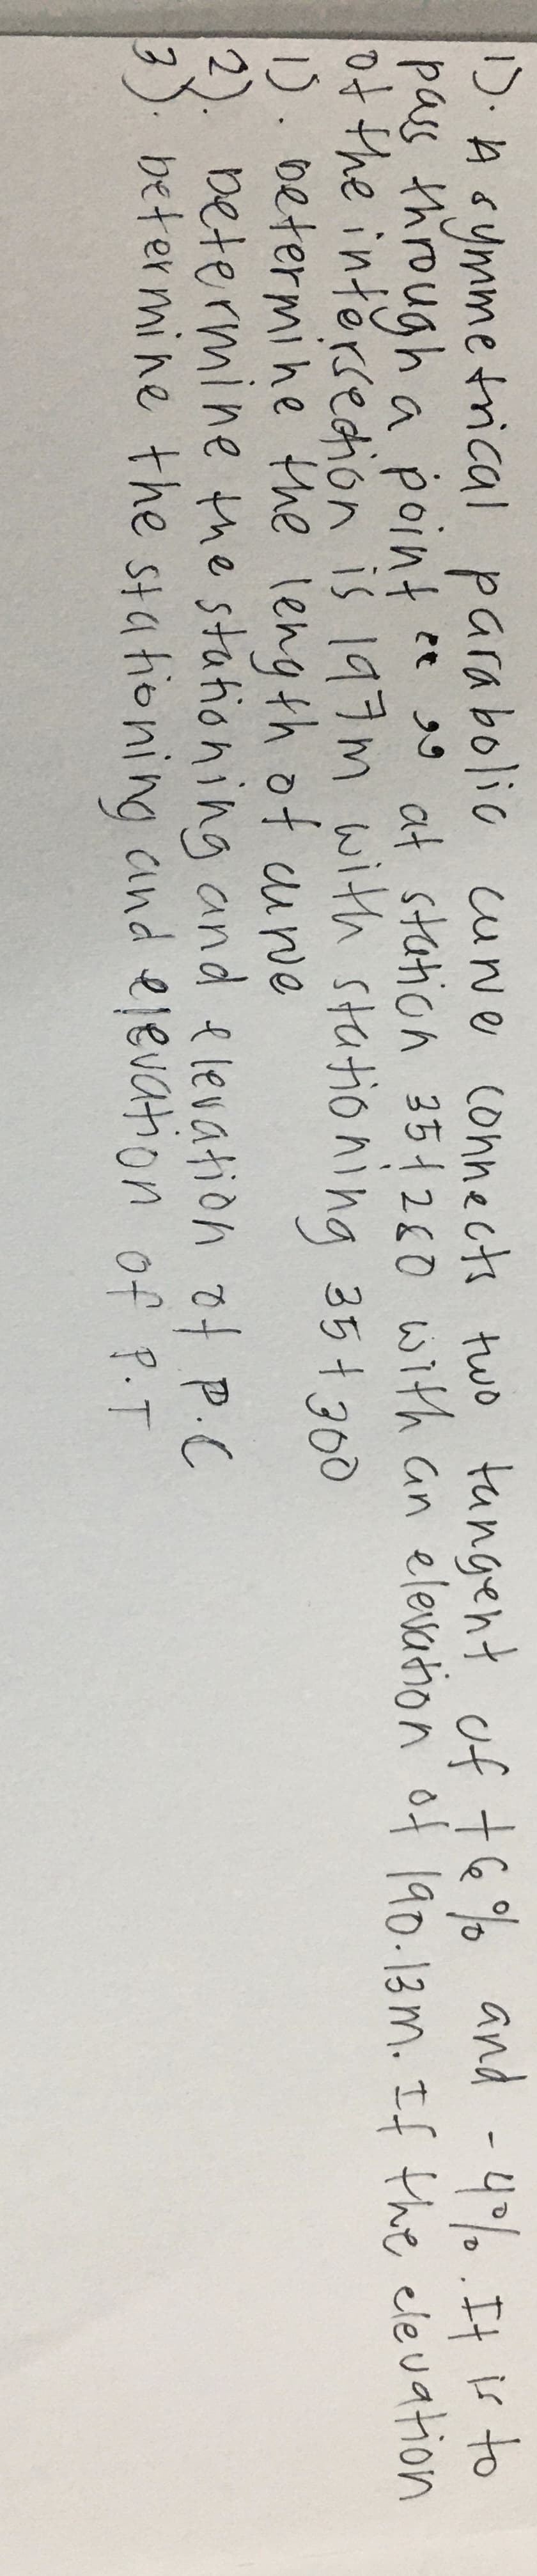 1). A symmetrical parabolic curve connects two tangent of +6% and -4%. It is to
pass through a point " " at station 35+260 with an elevation of 190.13m. If the elevation
of the intersection is 197m with stationing 35+300
1). Determine the length of curve
2). Determine the stationing and elevation of P.C
3). Determine the stationing and elevation of P.T